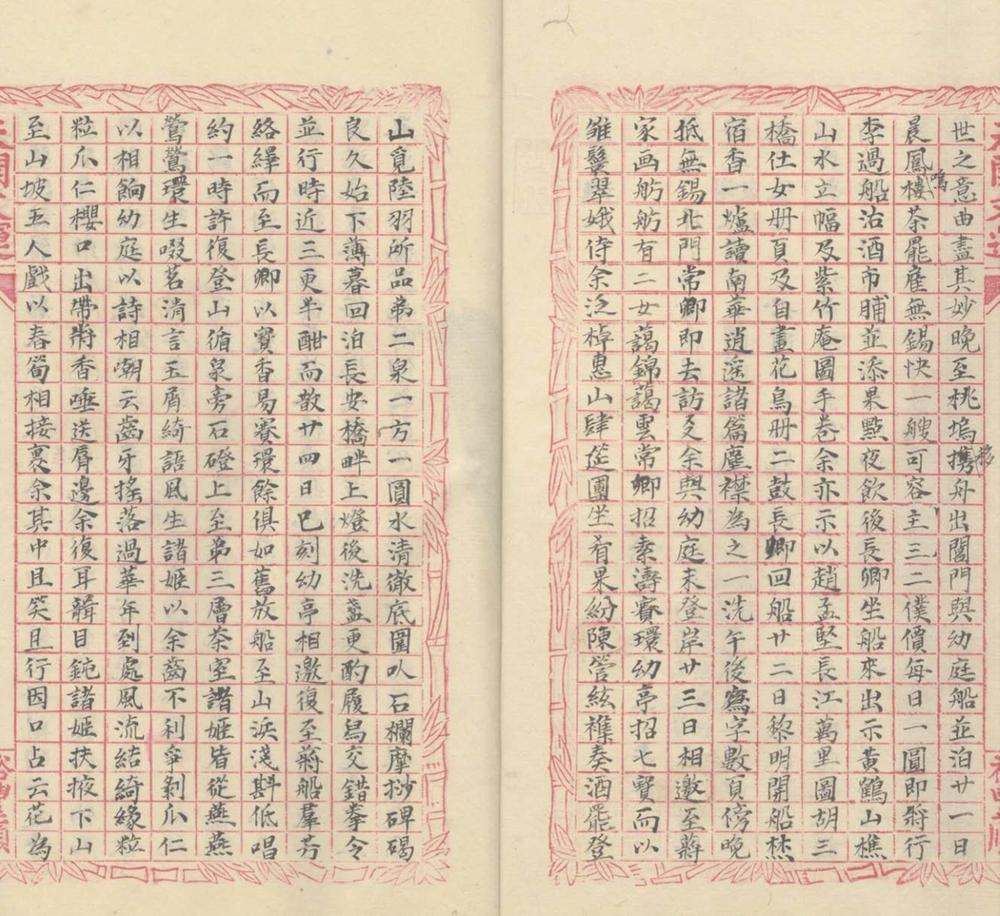 世之意曲盡其妙晚至桃塢攜舟出閶門與幼庭船並泊廿一日
移
晨鳳樓茶罷雇無錫快一艘可容主三二僕價每日一圓即將行
鳴
李過船治酒市脯並添果點夜飲後長卿坐船來出示黃鶴山樵
山水立幅及紫竹庵圖手卷余亦示以趙孟堅長江萬里圖胡三
橋仕女冊頁及自畫花鳥冊二鼓長卿回船廿二日黎明開船焚
宿香一爐讀南華逍遙諸篇塵襟為之一洗午後寫字數頁傍晚
抵無錫北門常卿即去訪友余與幼庭未登岸廿三日相邀至蔣
家画舫舫有二女藹錦藹雲常卿招素濤賽環幼亭招七寶而以
雏鬟翠娥侍余泛棹惠山肆筵團坐肴果紛陳管絃襍奏酒罷登
山覓陸羽所品第二泉一方一圓水清徹底圍以石欄摩挱碑碣
良久始下薄暮回泊長安橋畔上燈後洗盞更酌履舄交錯拳令
並行時近三更半酣而散廿四日巳刻幼亭相邀復至蔣船羣芳
絡繹而至長卿以寶香易賽環餘俱如舊放船至山浜淺斟低唱
約一時許復登山循泉旁石磴上至第三層茶室諸姬皆從燕燕
鶯鶯環生啜茗清言玉屑綺語風生諸姬以余齒不利爭剝瓜仁
以相餉幼庭以詩相嘲云齒牙搖落過華年到處風流結綺緣粒
粒瓜仁櫻口出帶將香唾送脣邊余復耳聾目鈍諸姬扶掖下山
至山坡五人戲以春筍相接裹余其中且笑且行因口占云花為